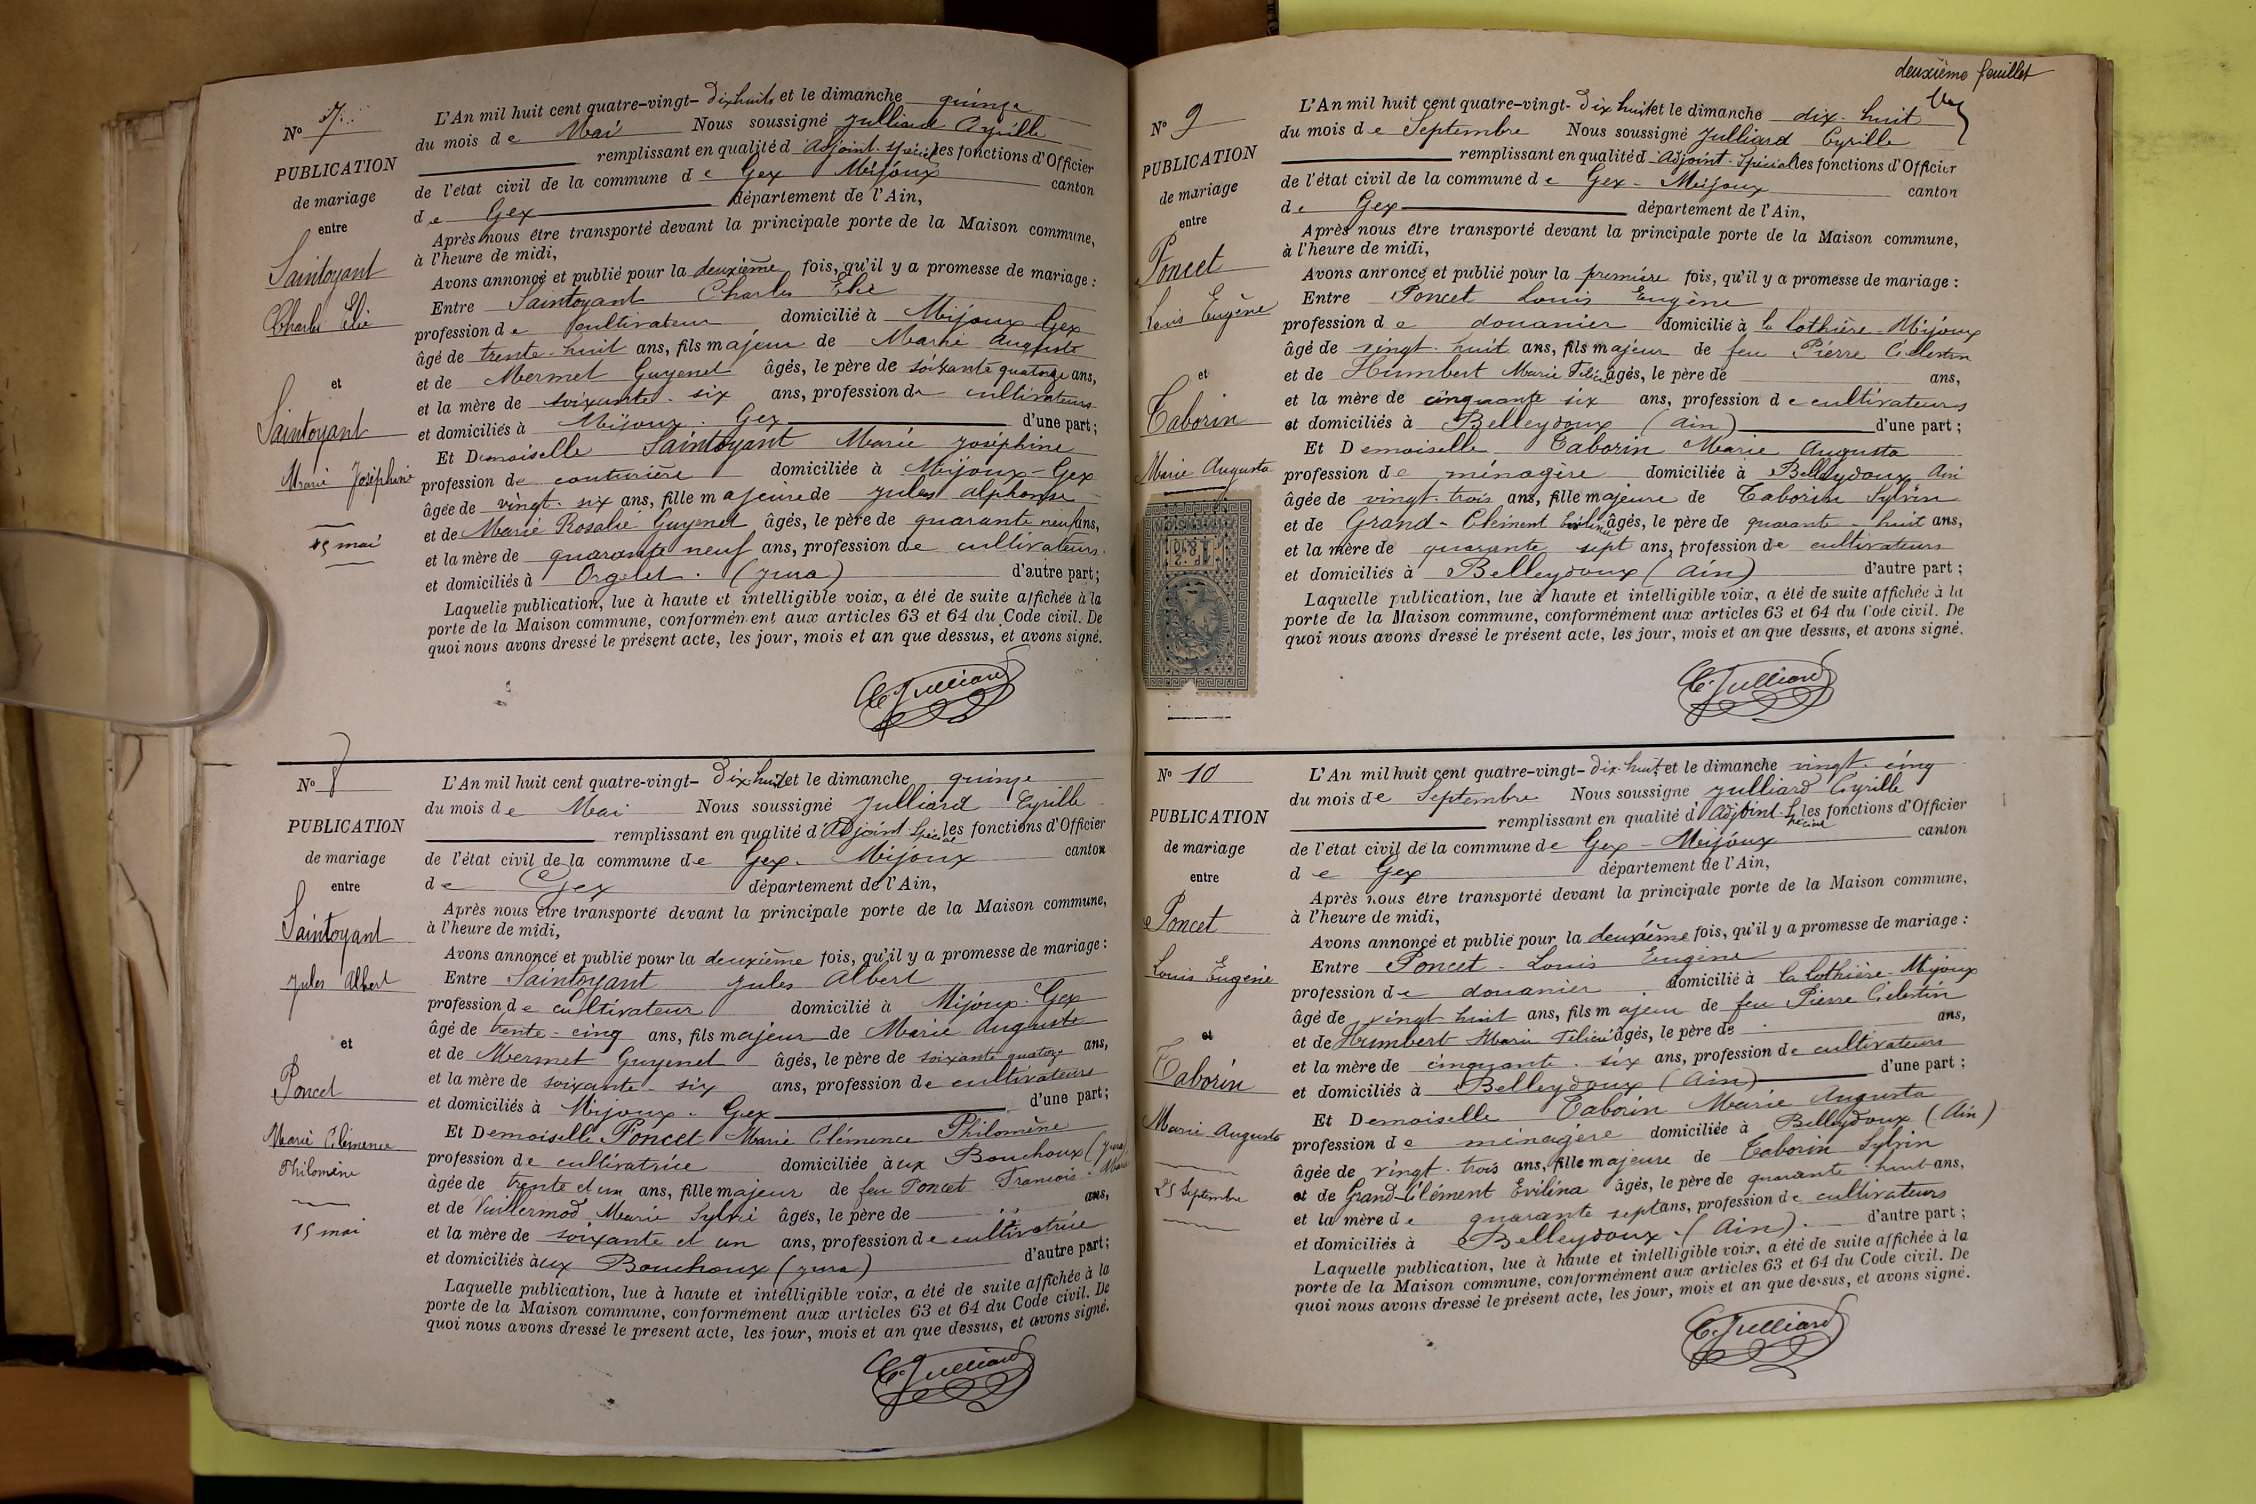 N° 7
PUBLICATION
de mariage
entre
Saintoyant
Charles Elie
et
Saintoyant
Marie Joséphine
15 mai
L'An mil huit cent quatre-vingt-dixhuit et le dimanche quinze
du mois de Mai Nous soussigné Julliard Cyrille
remplissant en qualité d'Adjoint-spécial les fonctions d'Officier
de l'état civil de la commune de Gex Mijoux canton
de Gex département de l'Ain,
Après nous être transporté devant la principale porte de la Maison commune,
à l'heure de midi,
Avons annoncé et publié pour la deuxième fois, qu'il y a promesse de mariage :
Entre Saintoyant Charles Elie
profession de cultivateur domicilié à Mijoux-Gex
âgé de trente-huit ans, fils majeur de Marie Auguste
et de Mermet Guyenet âgés, le père de soixante quatorze ans,
et la mère de soixante-six ans, profession de cultivateurs
et domiciliés à Mijoux-Gex d'une part ;
Et Demoiselle Saintoyant Marie Joséphine
profession de couturière domiciliée à Mijoux-Gex
âgée de vingt-six ans, fille majeure de Jules Alphonse
et de Marie Rosalie Guyenet âgés, le père de quarante neuf ans,
et la mère de quarante neuf ans, profession de cultivateurs
et domiciliés à Orgelet. (Jura) d'autre part ;
Laquelle publication, lue à haute et intelligible voix, a été de suite affichée à la
porte de la Maison commune, conformément aux articles 63 et 64 du Code civil. De
quoi nous avons dressé le présent acte, les jour, mois et an que dessus, et avons signé.
C. Julliard
N° 8
PUBLICATION
de mariage
entre
Saintoyant
Jules Albert
et
Poncet
Marie Clémence
Philomène
15 mai
L'An mil huit cent quatre-vingt-dixhuit et le dimanche quinze
du mois de Mai Nous soussigné Julliard Cyrille
remplissant en qualité d'Adjoint Spécial les fonctions d'Officier
de l'état civil de la commune de Gex-Mijoux canton
de Gex département de l'Ain,
Après nous être transporté devant la principale porte de la Maison commune,
à l'heure de midi,
Avons annoncé et publié pour la deuxième fois, qu'il y a promesse de mariage :
Entre Saintoyant Jules Albert
profession de cultivateur domicilié à Mijoux-Gex
âgé de trente-cinq ans, fils majeur de Marie Auguste
et de Mermet Guyenet âgés, le père de soixante quatorze ans,
et la mère de soixante-six ans, profession de cultivateurs
et domiciliés à Mijoux-Gex d'une part ;
Et Demoiselle Poncet Marie Clémence Philomène
profession de cultivatrice domiciliée aux Bouchoux (Jura)
âgée de trente et un ans, fille majeur de feu Poncet François
et de Vuillermod Marie Sylvie âgés, le père de ans,
et la mère de soixante et un ans, profession de cultivatrice
et domiciliés aux Bouchoux (Jura) d'autre part ;
Laquelle publication, lue à haute et intelligible voix, a été de suite affichée à la
porte de la Maison commune, conformément aux articles 63 et 64 du Code civil. De
quoi nous avons dressé le présent acte, les jour, mois et an que dessus, et avons signé.
C. Julliard
deuxième feuillet
N° 9
PUBLICATION
de mariage
entre
Poncet
Louis Eugène
et
Taborin
Marie Augusta
L'An mil huit cent quatre-vingt-dix huit et le dimanche dix-huit
du mois de Septembre Nous soussigné Julliard Cyrille
remplissant en qualité d'Adjoint-Spécial les fonctions d'Officier
de l'état civil de la commune de Gex-Mijoux canton
de Gex département de l'Ain,
Après nous être transporté devant la principale porte de la Maison commune,
à l'heure de midi,
Avons annoncé et publié pour la première fois, qu'il y a promesse de mariage :
Entre Poncet Louis Eugène
profession de douanier domicilié à la Lothière-Mijoux
âgé de vingt-huit ans, fils majeur de feu Pierre Célestin
et de Humbert Marie Félicie âgés, le père de ans,
et la mère de cinquante six ans, profession de cultivateurs
et domiciliés à Belleydoux (Ain) d'une part ;
Et Demoiselle Taborin Marie Augusta
profession de ménagère domiciliée à Belleydoux Ain
âgée de vingt-trois ans, fille majeure de Taborin Sylvin
et de Grand-Clément Evilina âgés, le père de quarante-huit ans,
et la mère de quarante sept ans, profession de cultivateurs
et domiciliés à Belleydoux (Ain) d'autre part ;
Laquelle publication, lue à haute et intelligible voix, a été de suite affichée à la
porte de la Maison commune, conformément aux articles 63 et 64 du Code civil. De
quoi nous avons dressé le présent acte, les jour, mois et an que dessus, et avons signé.
C. Julliard
N° 10
PUBLICATION
de mariage
entre
Poncet
Louis Eugène
et
Taborin
Marie Augusta
25 Septembre
L'An mil huit cent quatre-vingt-dix-huit et le dimanche vingt-cinq
du mois de Septembre Nous soussigné Julliard Cyrille
remplissant en qualité d'Adjoint-Spécial les fonctions d'Officier
de l'état civil de la commune de Gex-Mijoux canton
de Gex département de l'Ain,
Après nous être transporté devant la principale porte de la Maison commune,
à l'heure de midi,
Avons annoncé et publié pour la deuxième fois, qu'il y a promesse de mariage :
Entre Poncet-Louis Eugène
profession de douanier domicilié à la Lothière-Mijoux
âgé de vingt-huit ans, fils majeur de feu Pierre Célestin
et de Humbert Marie Félicie âgés, le père de ans,
et la mère de cinquante-six ans, profession de cultivateurs
et domiciliés à Belleydoux (Ain) d'une part ;
Et Demoiselle Taborin Marie Augusta
profession de ménagère domiciliée à Belleydoux (Ain)
âgée de vingt-trois ans, fille majeure de Taborin Sylvin
et de Grand-Clément Evilina âgés, le père de quarante-huit ans,
et la mère de quarante sept ans, profession de cultivateurs
et domiciliés à Belleydoux-(Ain). d'autre part ;
Laquelle publication, lue à haute et intelligible voix, a été de suite affichée à la
porte de la Maison commune, conformément aux articles 63 et 64 du Code civil. De
quoi nous avons dressé le présent acte, les jour, mois et an que dessus, et avons signé.
C. Julliard